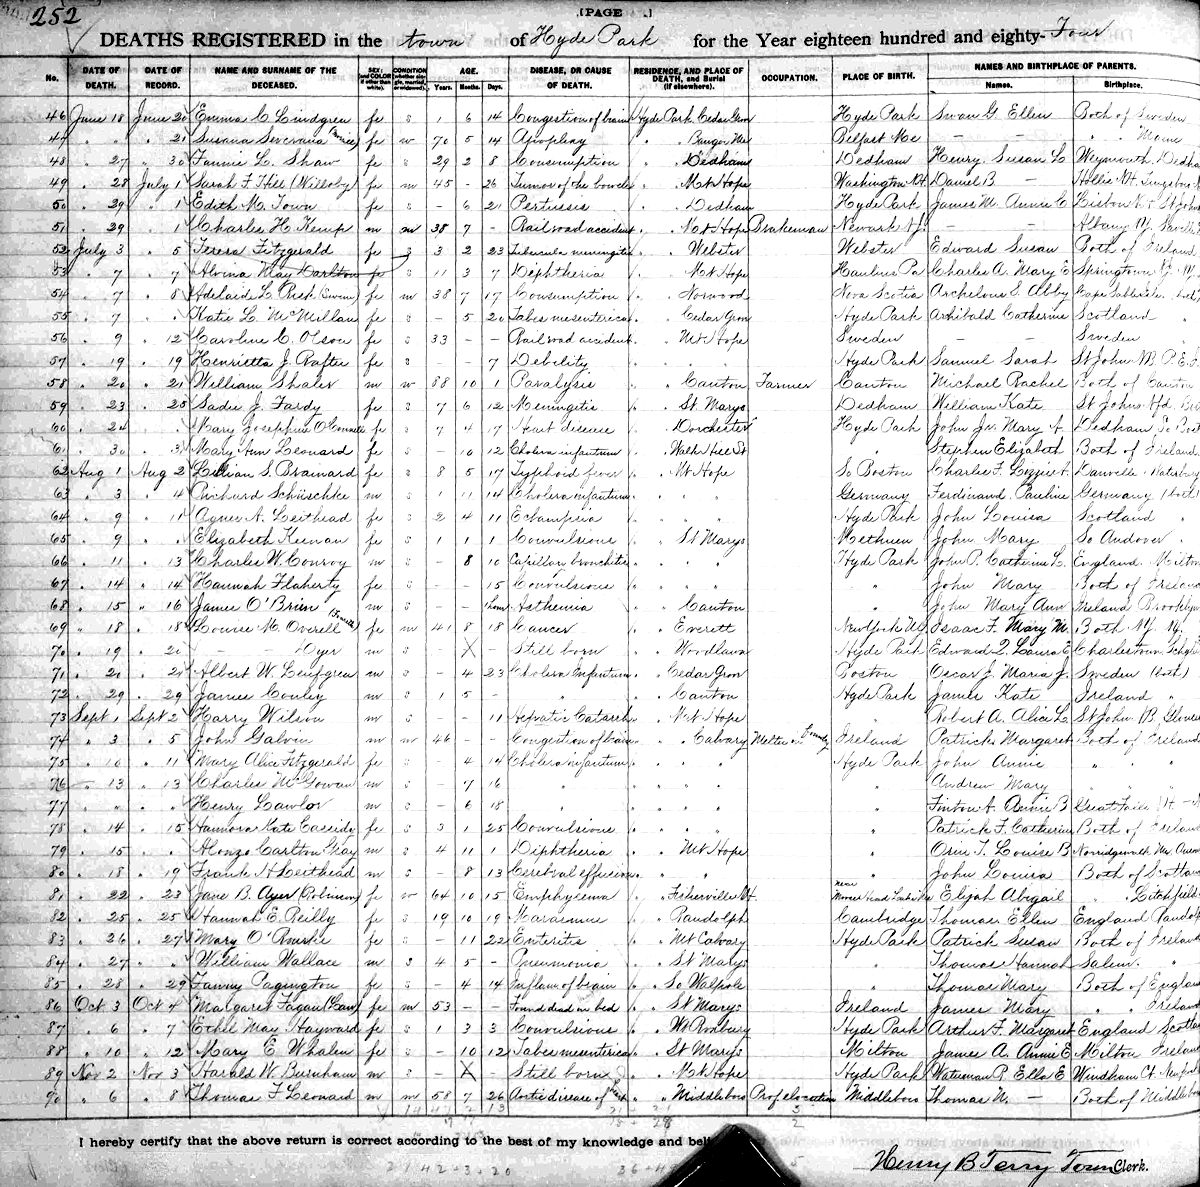 252
[PAGE ]
DEATHS REGISTERED in the town of Hyde Park for the Year eighteen hundred and eighty-Four
No. DATE OF DEATH. DATE OF RECORD. NAME AND SURNAME OF THE DECEASED. SEX; CONDITION AGE. Years. Months. Days. DISEASE, OR CAUSE OF DEATH. RESIDENCE, AND PLACE OF DEATH, and Burial (if elsewhere). OCCUPATION. PLACE OF BIRTH. NAMES AND BIRTHPLACE OF PARENTS. Names. Birthplace.
46 June 18 June 20 Emma C. Lindgren fe s 1 6 14 Congestion of brain Hyde Park Cedar Grove Hyde Park Swan G. Ellen Both of Sweden
47 " " " 21 Susana fe w 70 5 14 Apoplexy " " Bangor Me Belfast Me - - " " Maine
48 " 27 " 30 Fannie L. Shaw fe s 29 2 8 Consumption " " Dedham Dedham Henry Susan L. Weymouth Dedham
49 " 28 July 1 Sarah F. Hill (Willoby) fe m 45 - 26 Tumor of the bowels " " Mt Hope Washington NH Daniel B. - Hollis NH
50 " 29 " 1 Edith M. Town fe s - 6 21 Pertussis " " Dedham Hyde Park James M. Annie C. Lisbon
51 " 29 " 1 Charles H. Kemp m m 38 7 - Railroad accident " " Mt Hope Brakeman Newark N.J. Albany NY
52 July 3 " 5 Teresa Fitzgerald fe s 3 2 23 Tubercula meningitis " " Webster Webster Edward Susan Both of Ireland
53 " 7 " 7 Alvina May Carlton fe s 11 3 7 Diphtheria " " Mt Hope Pa Charles A. Mary E.
54 " 7 " 8 Adelaide L. fe m 38 7 17 Consumption " " Norwood Nova Scotia Archelous S. Abby
55 " 7 " " Katie L. McMillan fe s - 5 20 Tabes mesenterica " " Cedar Grove Hyde Park Archibald Catherine Scotland "
56 " 9 " 12 Caroline C. Olson fe s 33 - - Railroad accident " " Mt Hope Sweden - - Sweden "
57 " 19 " 19 Henrietta J. Rafter fe s - - 7 Debility " " " Hyde Park Samuel Sarah St John NB P.E.I
58 " 20 " 21 William Shaler m w 88 10 1 Paralysis " " Canton Farmer Canton Michael Rachel Both of Canton
59 " 23 " 25 Sadie J. Fardy fe s 7 6 12 Meningitis " " St Marys Dedham William Kate St Johns Nfd
60 " 24 " " Mary Josephine O'Connell fe s 7 4 17 Heart disease " " Dorchester Hyde Park John Jr Mary A. Dedham So Boston
61 " 30 " 31 Mary Ann Leonard fe s - 10 12 Cholera infantum " " Walk Hill St " Stephen Elizabeth Both of Ireland
62 Aug 1 Aug 2 Lillian S. Brainard fe s 8 5 17 Typhoid fever " " Mt Hope So Boston Charles F. Lizzie A. Danville Waterbury
63 " 3 " 4 Richard Schüschke m s 1 11 14 Cholera infantum " " " Germany Ferdinand Pauline Germany (both)
64 " 9 " 11 Agnes A. Leithead fe s 2 4 11 Eclampsia " " " Hyde Park John Louisa Scotland "
65 " 9 " " Elizabeth Keenan fe s 1 1 1 Convulsions " " St Marys Methuen John Mary So Andover "
66 " 11 " 13 Charles W. Conroy m s - 8 10 Capillary bronchitis " " " Hyde Park John P. Catherine L. England Milton
67 " 14 " 14 Hannah Flaherty fe s - - 15 Convulsions " " " " John Mary Both of Ireland
68 " 15 " 16 James O'Brien m s - - 1 hour Asthenia " " Canton " John Mary Ann Ireland Brooklyn
69 " 18 " 18 Louise M. Overell fe m 41 8 18 Cancer " " Everett New York Isaac F. Mary M. Both N.Y.
70 " 19 " 20 - - Dyer m X Still born " " Woodlawn Hyde Park Edward L. Laura E. Charlestown
71 " 21 " 21 Albert W. Leufgren m s - 4 23 Cholera Infantum " " Cedar Grove Boston Oscar J. Maria J. Sweden (both)
72 " 29 " 29 James Conley m s 1 5 - " " " " Canton Hyde Park James Kate Ireland "
73 Sept 1 Sept 2 Harry Wilson m s - - 11 Hepatic Catarrh " " Mt Hope " Robert A. Alice L. St John NB
74 " 3 " 5 John Galvin m m 46 - - Congestion of brain " " Calvary Melter in foundry Ireland Patrick Margaret Both of Ireland
75 " 10 " 11 Mary Alice Fitzgerald fe s - 4 14 Cholera infantum " " " Hyde Park John Annie " " "
76 " 13 " 13 Charles McGowan m s - 7 16 " " " " " " Andrew Mary " " "
77 " " " " Henry Lawlor m s - 6 18 " " " " " " Finton A. Annie B. Great Falls
78 " 14 " 15 Hannora Kate Cassidy fe s 3 1 25 Convulsions " " " " Patrick F. Catherine Both of Ireland
79 " 15 " " Alonzo Carlton Gray m s 4 11 1 Diphtheria " " Mt Hope " Orin T. Louise B. Norridgewock Me
80 " 18 " 19 Frank H. Leithead m s - 8 13 Cerebral effusion " " " " John Louisa Both of Scotland
81 " 22 " 23 Jane B. Ayer (Robinson) fe w 64 10 15 Emphysema " " Fisherville near Moosehead Lake Me Elijah Abigail " Litchfield
82 " 25 " 25 Hannah E. Reilly fe s 19 10 19 Marasmus " " Randolph Cambridge Thomas Ellen England Randolph
83 " 26 " 27 Mary O'Rourke fe s - 11 22 Enteritis " " Mt Calvary Hyde Park Patrick Susan Both of Ireland
84 " 27 " " William Wallace m s 4 5 - Pneumonia " " St Marys " Thomas Hannah Salem "
85 " 28 " 29 Fanny Pagington fe s - 4 14 Inflam of brain " " So Walpole " Thomas Mary Both of England
86 Oct 3 Oct 4 Margaret Fagan fe m 53 - - Found dead in bed " " St Marys Ireland James Mary " " Ireland
87 " 6 " 7 Ethel May Hayward fe s 1 3 3 Convulsions " " Wt Roxbury Hyde Park Arthur F. Margaret England Scotland
88 " 10 " 12 Mary E. Whalen fe s - 10 12 Tabes mesenterica " " St Marys Milton James A. Annie E. Milton Ireland
89 Nov 2 Nov 3 Harold W. Burnham m s - X - Still born " " Mt Hope Hyde Park Waterman P. Ella E. Windham Ct
90 " 6 " 8 Thomas F. Leonard m m 58 7 26 Aortic disease of heart " " Middleboro Prof elocution Middleboro Thomas W. - Both of Middleboro
I hereby certify that the above return is correct according to the best of my knowledge and beli
Henry B Terry Town Clerk.